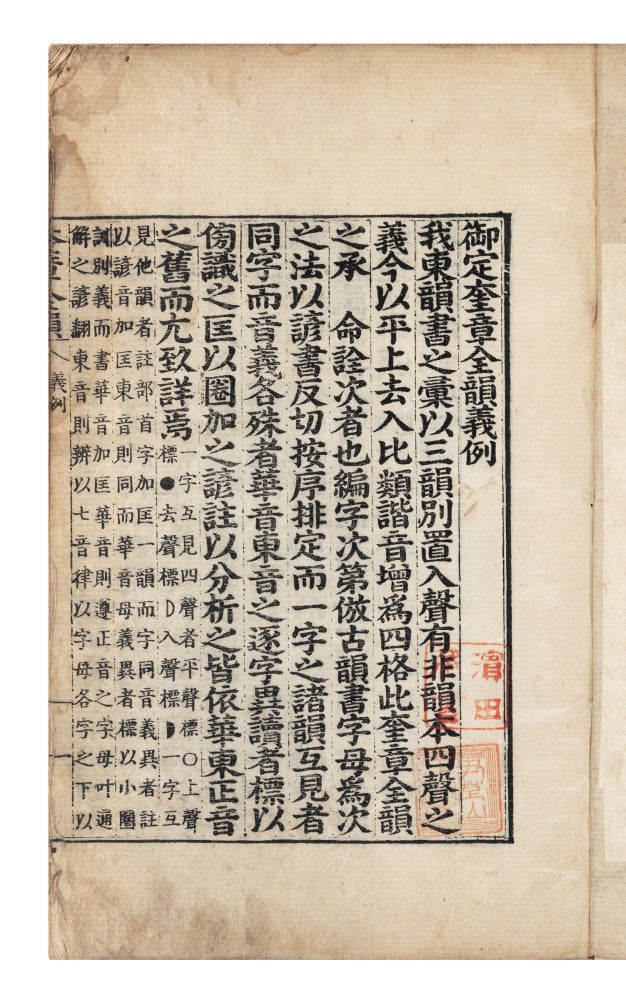 御定奎章全韻義例
我東韻書之彙以三韻別置入聲有非韻本四聲之
義今以平上去入比類諧音增爲四格此奎章全韻
之承　命詮次者也編字次第倣古韻書字母爲次
之法以諺書反切按序排定而一字之諸韻互見者
同字而音義各殊者華音東音之逐字異讀者標以
傍識之匡以圈加之諺註以分析之皆依華東正音
之舊而亢致詳焉
一字互見四聲者平聲標○上聲
標●去聲標D入聲標◗一字互
見他韻者註部首字加匡一韻而字同音義異者註
以諺音加匡東音則同而華音母義異者標以小圈
別義而書華音加匡華音則遵正音之字母叶通
解之諺翻東音則辨以七音律以字母各字之下以
奎章全韻
義例
濵田